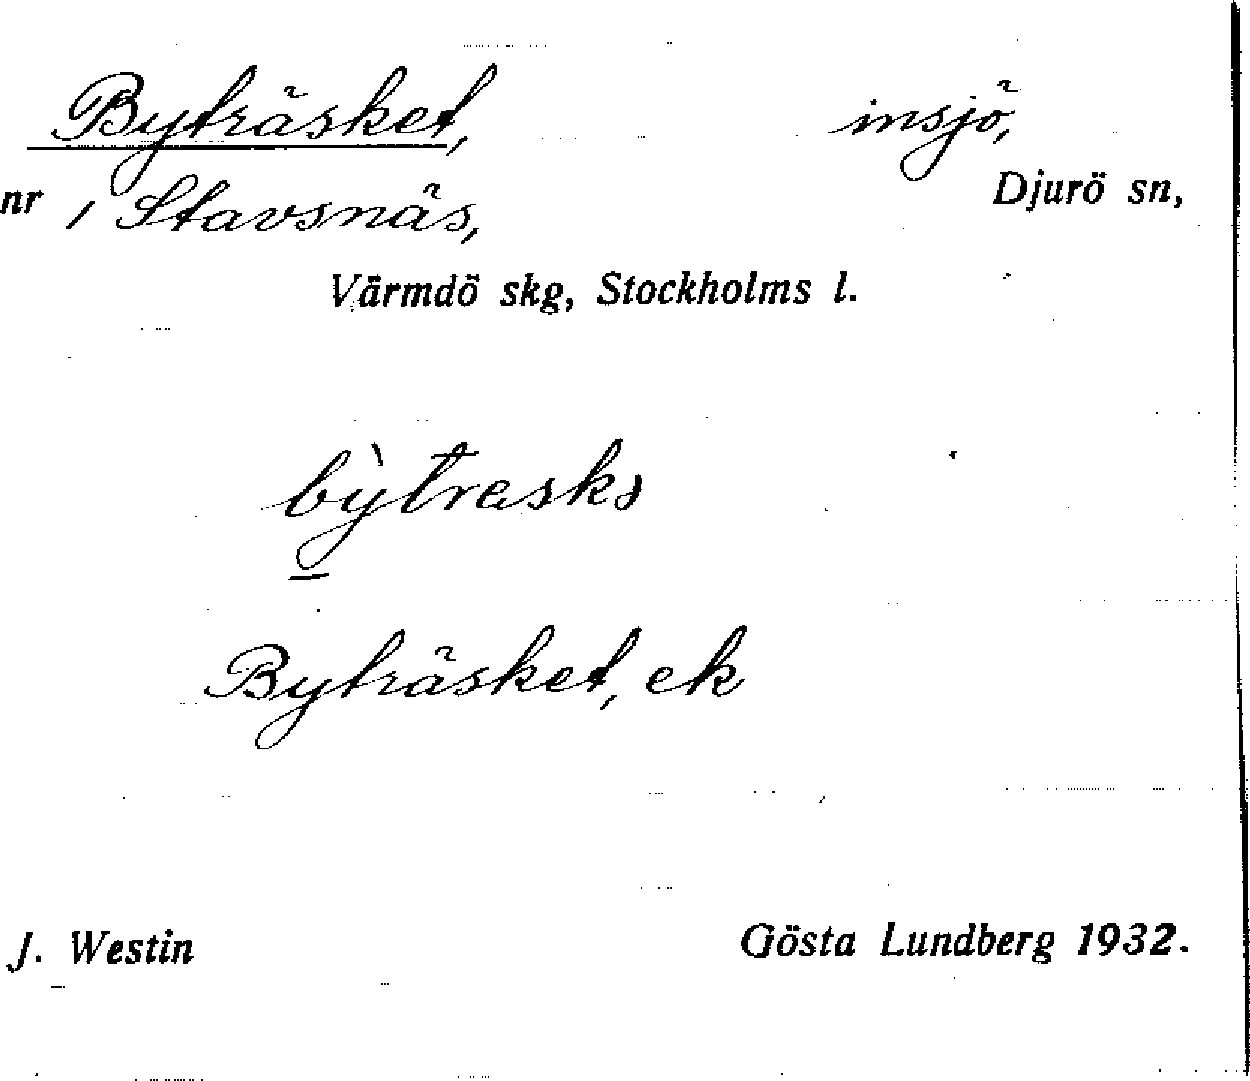 Byträsket, insjö,
Djurö sn,
nr 1 Stavsnäs,
Värmdö skg, Stockholms l.
Byträsket, ek
J. Westin Gösta Lundberg 1932.